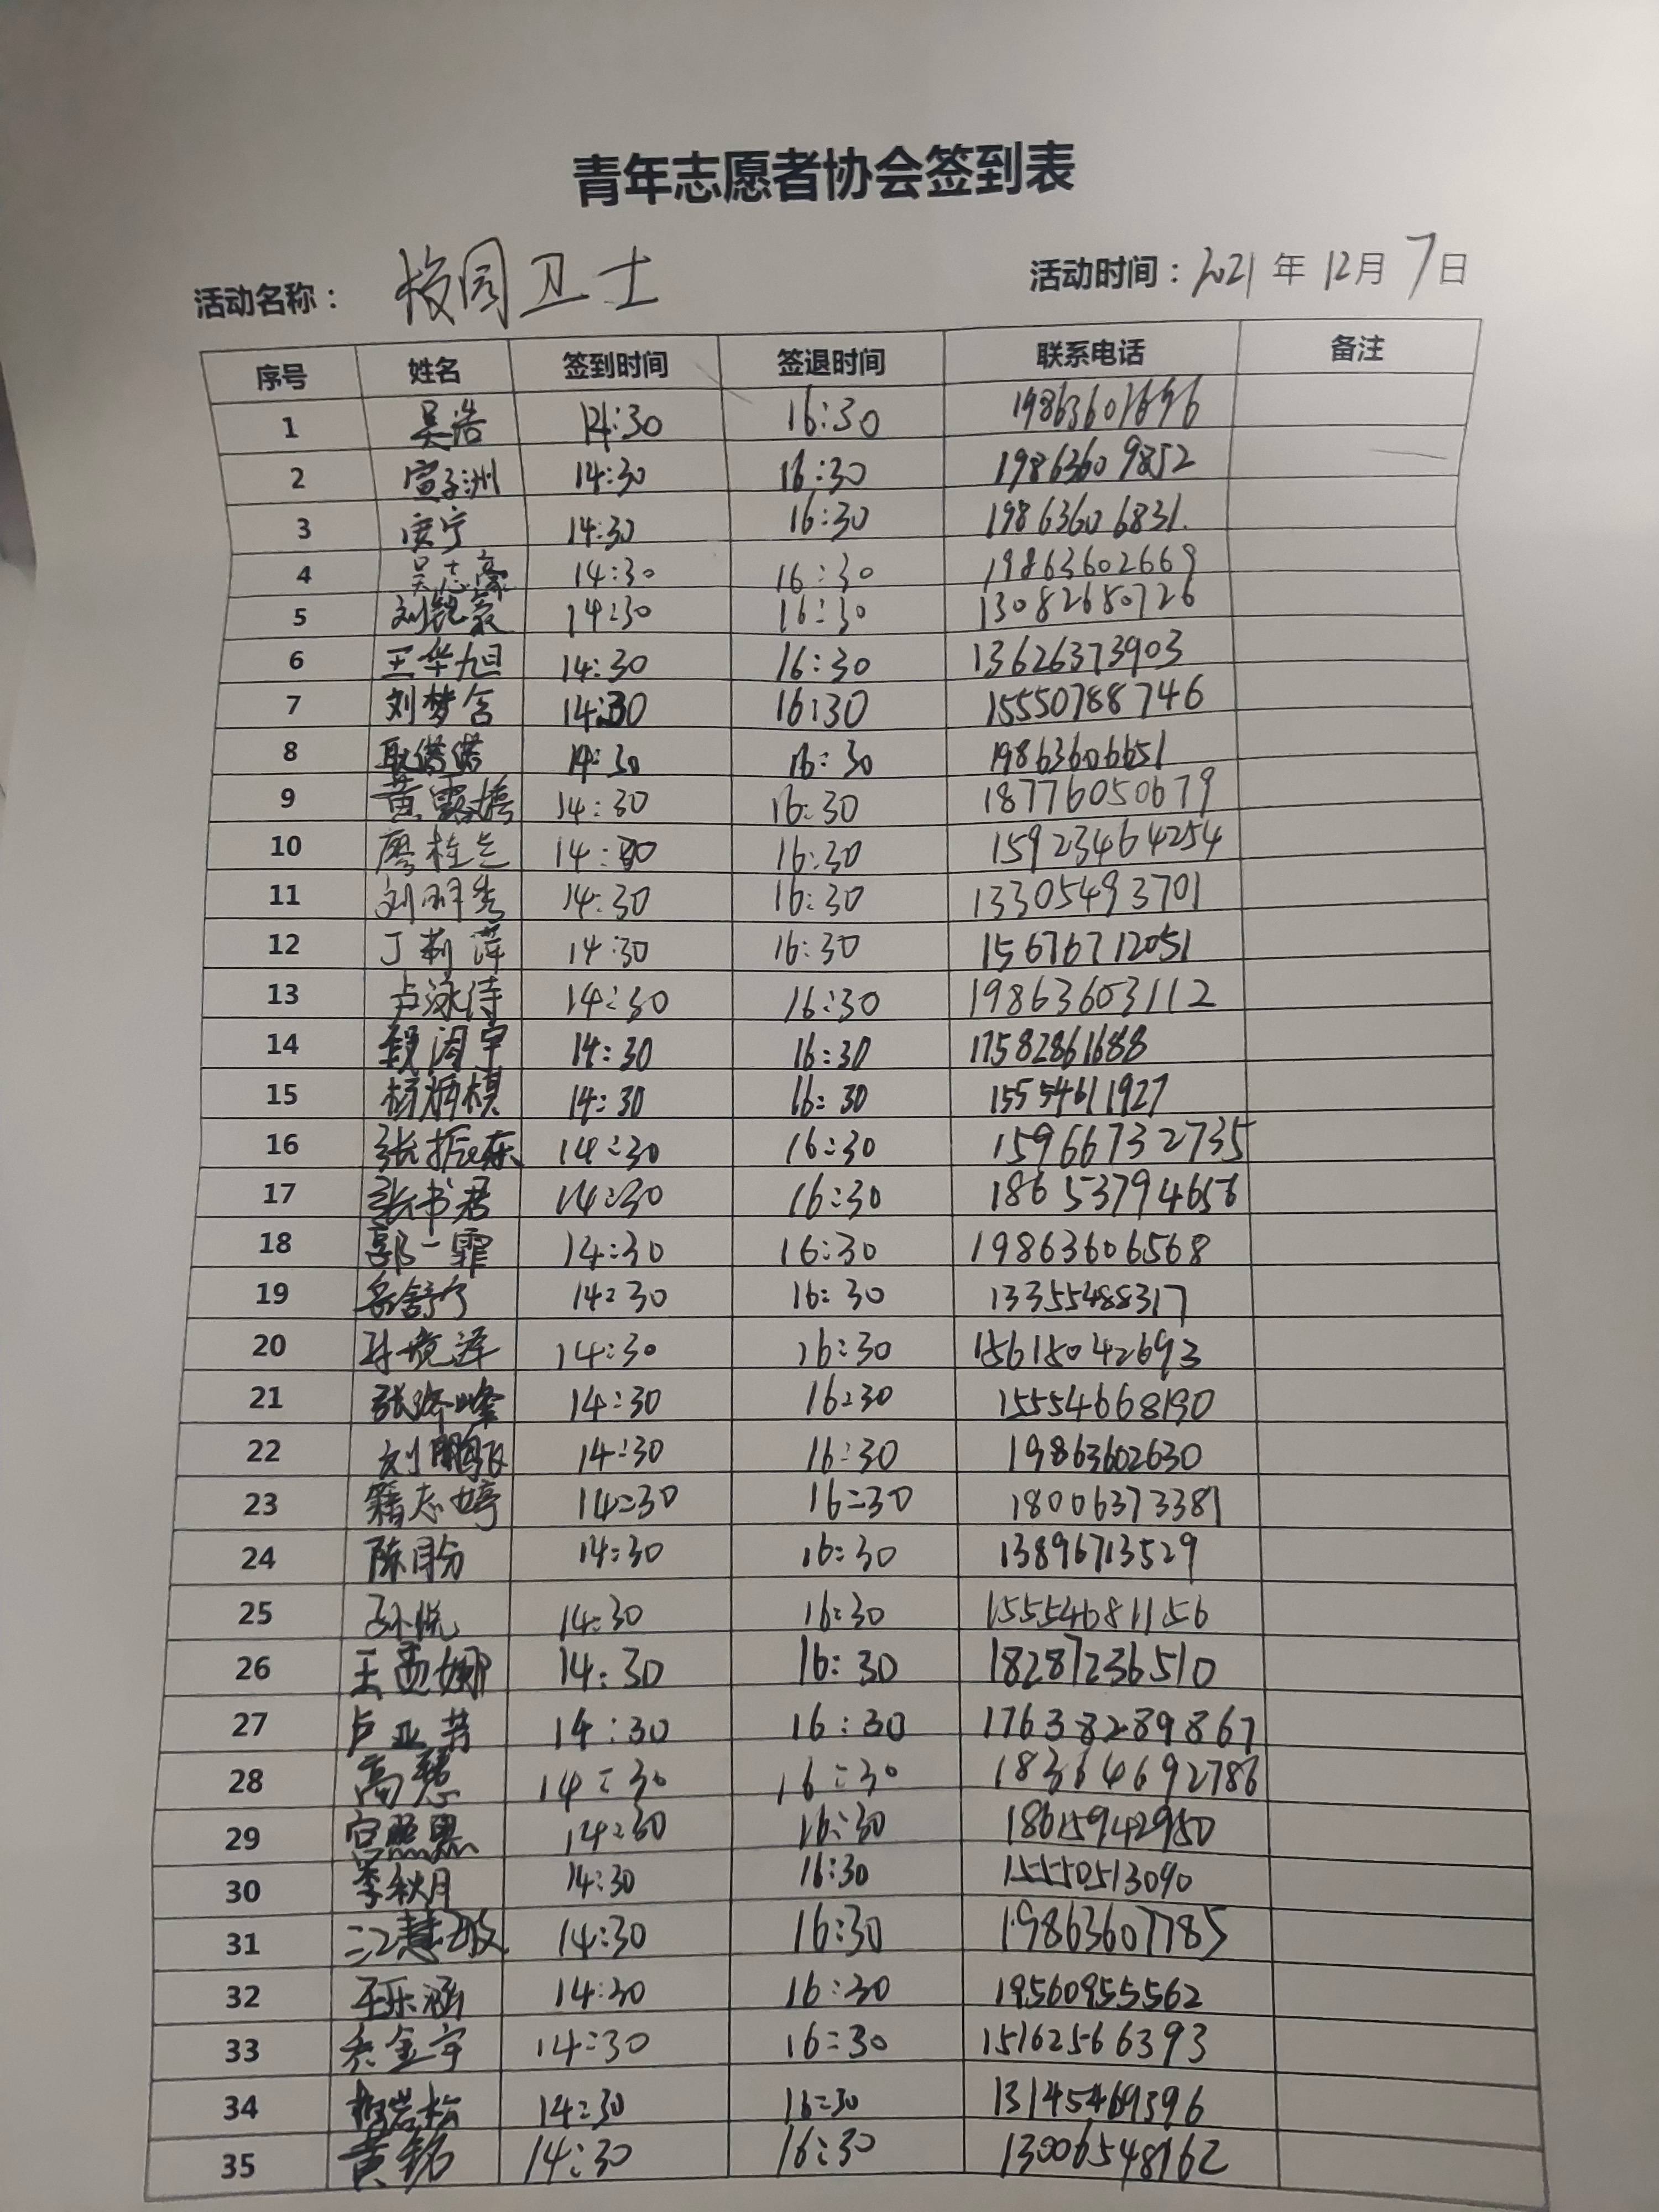 青年志愿者协会签到表
活动名称： 校园卫士 活动时间：2021 年 12月 7日
序号 姓名 签到时间 签退时间 联系电话 备注
1 吴浩 14:30 16:30
2 14:30 16:30 19863609852
3 14:30 16:30 19863606831
4 吴志豪 14:30 16:30 19863602669
5 14:30 16:30 13082680726
6 王华旭 14:30 16:30 13626373903
7 刘梦含 14:30 16:30 15550788746
8 14:30 16:30 19863606651
9 14:30 16:30 18776050679
10 14:30 16:30 15923464254
11 14:30 16:30 13305493701
12 丁莉萍 14:30 16:30 15676712051
13 卢泳诗 14:30 16:30 19863603112
14 14:30 16:30 17582861688
15 杨炳棋 14:30 16:30 15554611927
16 张振东 14:30 16:30 15966732735
17 张书君 14:30 16:30 18653794656
18 郭一霏 14:30 16:30 19863606568
19 岳舒宁 14:30 16:30 13355488317
20 14:30 16:30 15615042693
21 14:30 16:30 15554668190
22 14:30 16:30 19863602630
23 籍志婷 14:30 16:30 18006373381
24 陈月分 14:30 16:30 13896713529
25 孙悦 14:30 16:30 15554681156
26 王孟娜 14:30 16:30 18287236510
27 14:30 16:30 17638289867
28 高慧 14:30 16:30 18364692786
29 14:30 16:30 18615942950
30 李秋月 14:30 16:30 15550513090
31 江慧敏 14:30 16:30 19863607785
32 王乐涵 14:30 16:30 19560955562
33 14:30 16:30 15162566393
34 14:30 16:30 13145469396
35 黄铭 14:30 16:30 13006548162